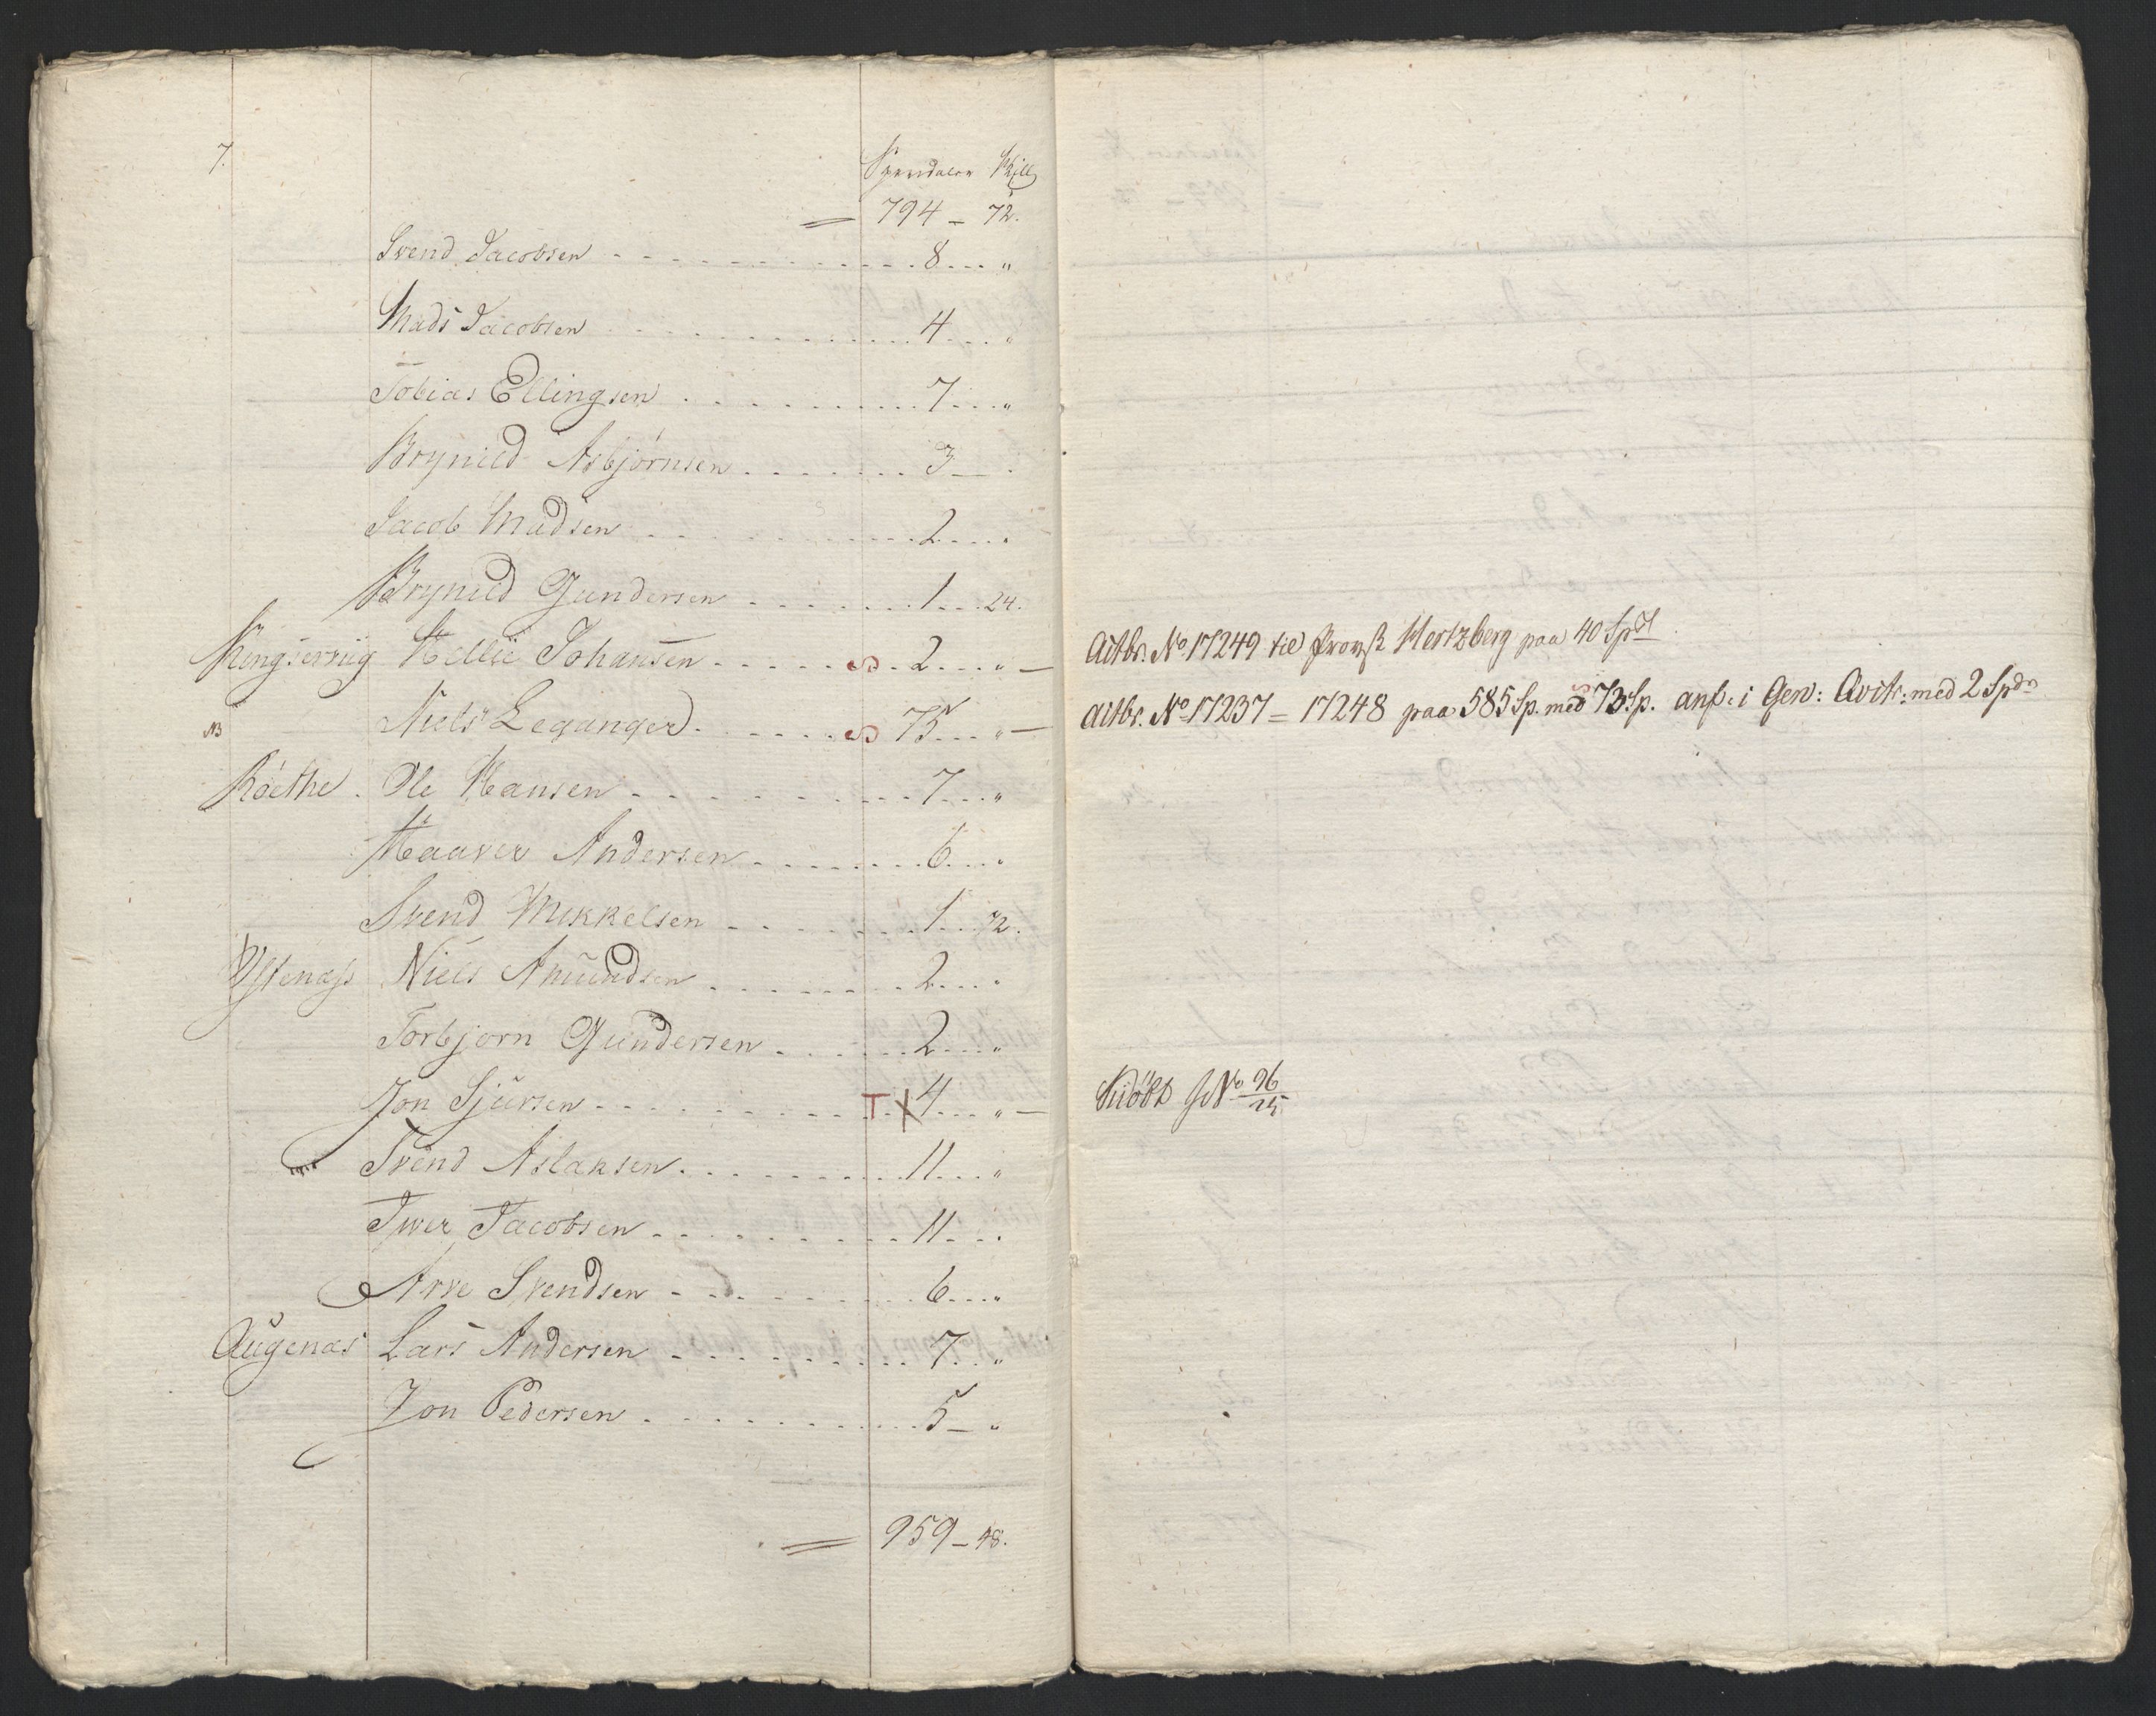 7.
Specidaler Skill
= 794 - 72.
Svend Jacobsen 8 "
Mads Jacobsen 4 "
Tobias Ellingsen 7 "
Brynild Asbjörnsen 3 -
Jacob Madsen 2 "
Brynild Gundersen 1 24.
Kingservug Hellie Johansen 2 " -
NB Niels Leganger 75 " -
Röethe Ole Hansen 7 "
Haaver Andersen 6 "
Svend Mikkelsen 1 72.
Ystenæss Niels Amundsen 2 "
Torbjorn Gundersen 2 "
Jon Sjursen T X 4 " -
Svend Aslaksen 11 "
Iver Jacobsen 11 "
Arve Svendsen 6 "
Augenæs Lars Andersen 7 "
Jon Pedersen 5 - "
= 959 - 48.
Aitbr. No 17249 til Provst Hertzberg paa 40 Spd
Aitbr. No 17237 = 17248 paa 585 Sp. med 73 Sp. anf. i Gen: Qvit: med 2 Spdr
No 96/25